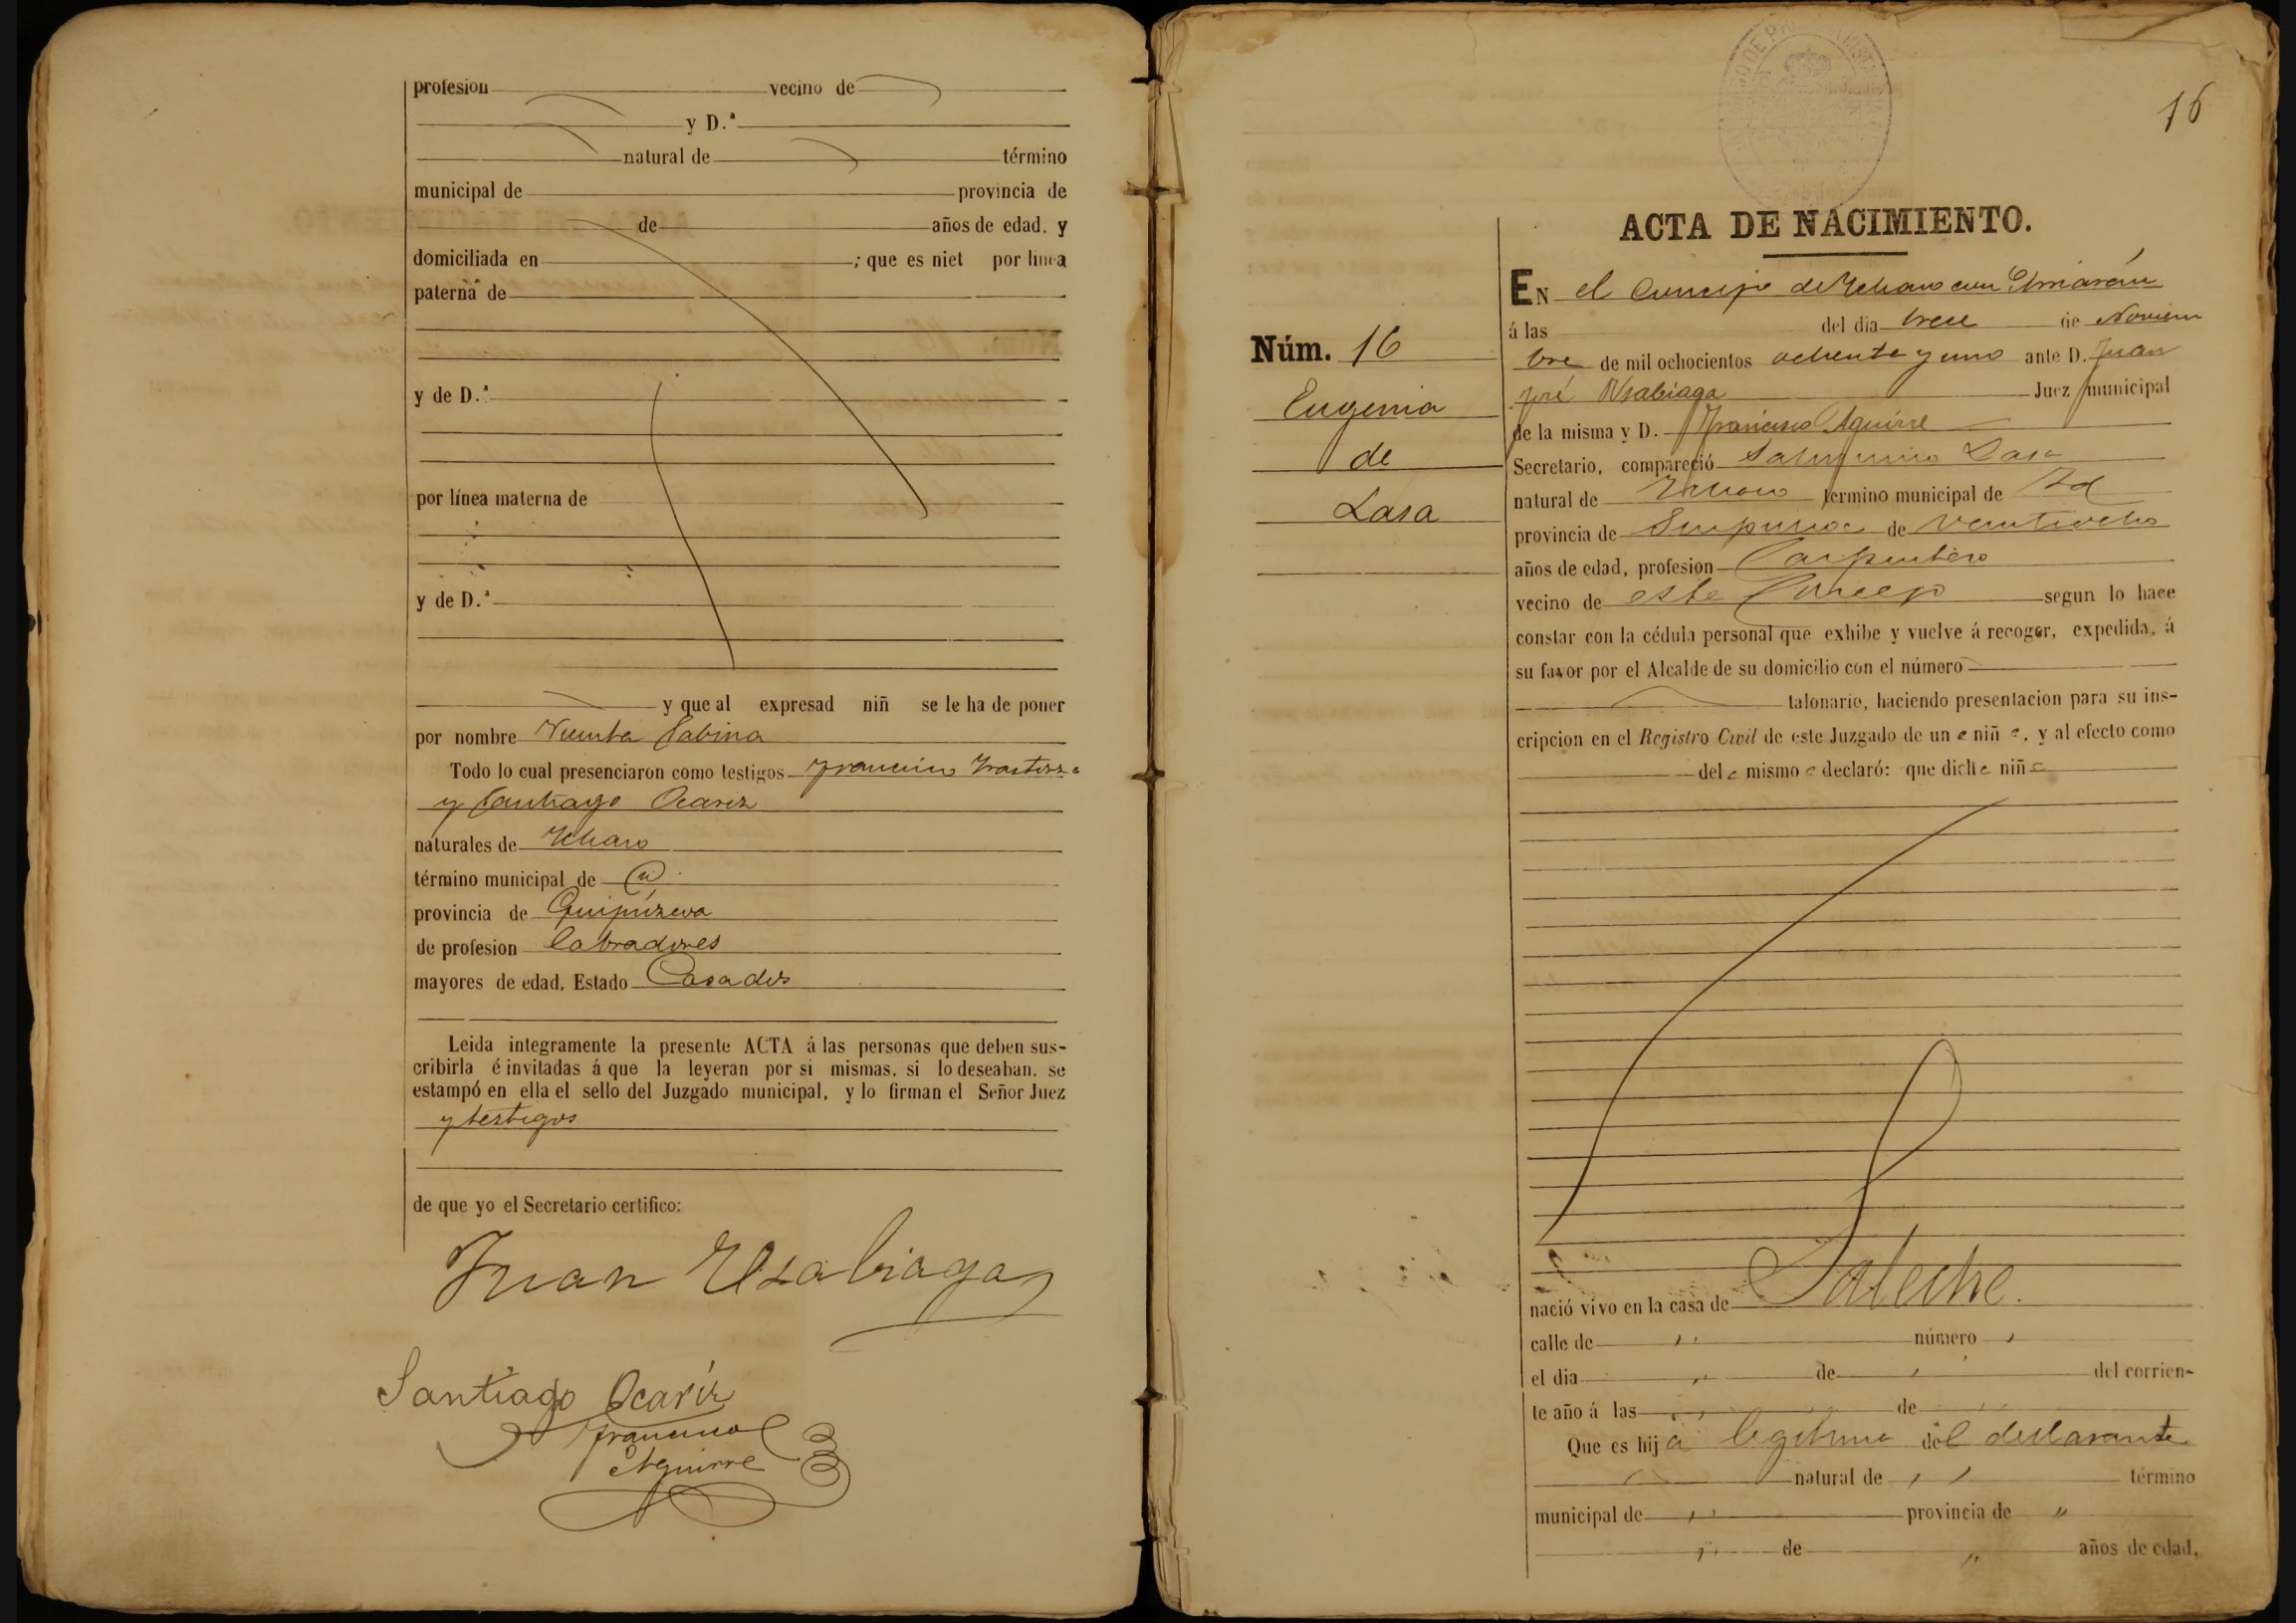 profesion vecino de
y D.ª
natural de término
municipal de provincia de
de años de edad, y
domiciliada en ; que es niet por linea
paterna de
y de D.ª
por línea materna de
y de D.ª
y que al expresad niñ se le ha de poner
por nombre Vicenta Sabina
Todo lo cual presenciaron como testigos Francisco
y Santiago Ocariz
naturales de Ichaso
término municipal de id
provincia de Guipúzcoa
de profesion labradores
mayores de edad, Estado Casados
Leida integramente la presente ACTA á las personas que deben sus-
cribirla é invitadas á que la leyeran por si mismas, si lo deseaban, se
estampó en ella el sello del Juzgado municipal, y lo firman el Señor Juez
y testigos
de que yo el Secretario certifico:
Juan Usabiaga
Santiago Ocariz
Francisco
Aguirre
16
ACTA DE NACIMIENTO.
Núm. 16
Eugenia
de
Lasa
EN el Concejo de Ichaso
á las del dia trece de Noviem
bre de mil ochocientos ochenta y uno ante D. Juan
José Usabiaga Juez municipal
de la misma y D. Francisco Aguirre
Secretario, compareció Saturnino Lasa
natural de Ichaso termino municipal de Id
provincia de Guipuzcoa de veintiocho
años de edad, profesion Carpintero
vecino de este Concejo segun lo hace
constar con la cédula personal que exhibe y vuelve á recoger, expedida, á
su favor por el Alcalde de su domicilio con el número
talonario, haciendo presentacion para su ins-
cripcion en el Registro Civil de este Juzgado de un a niñ a, y al efecto como
del a mismo a declaró: que dich a niñ a
nació vivo en la casa de Saleche.
calle de " número "
el dia " de " del corrien-
te año á las " de "
Que es hij a legitima del declarante
natural de " término
municipal de " provincia de "
" de " años de edad,